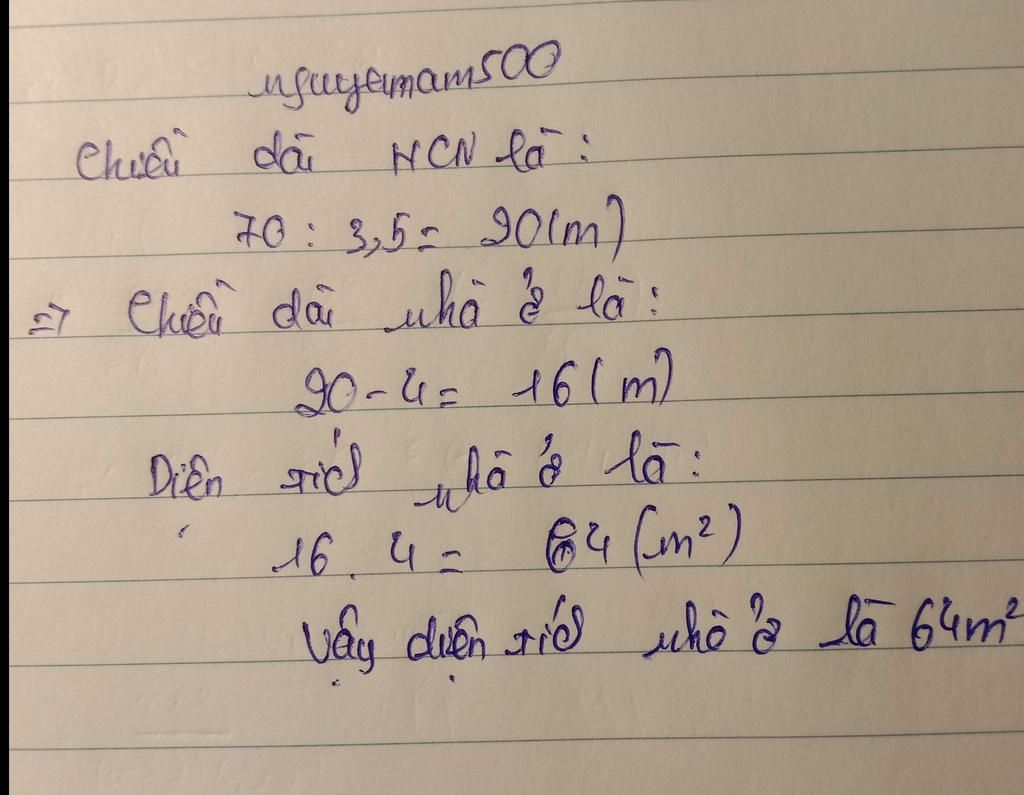 nguyennam500
Chiều dài HCN là:
70 : 3,5 = 20(m)
=> Chiều dài nhà ở là:
20 - 4 = 16(m)
Diện tích nhà ở là:
16 . 4 = 64(m²)
Vậy diện tích nhà ở là 64m²